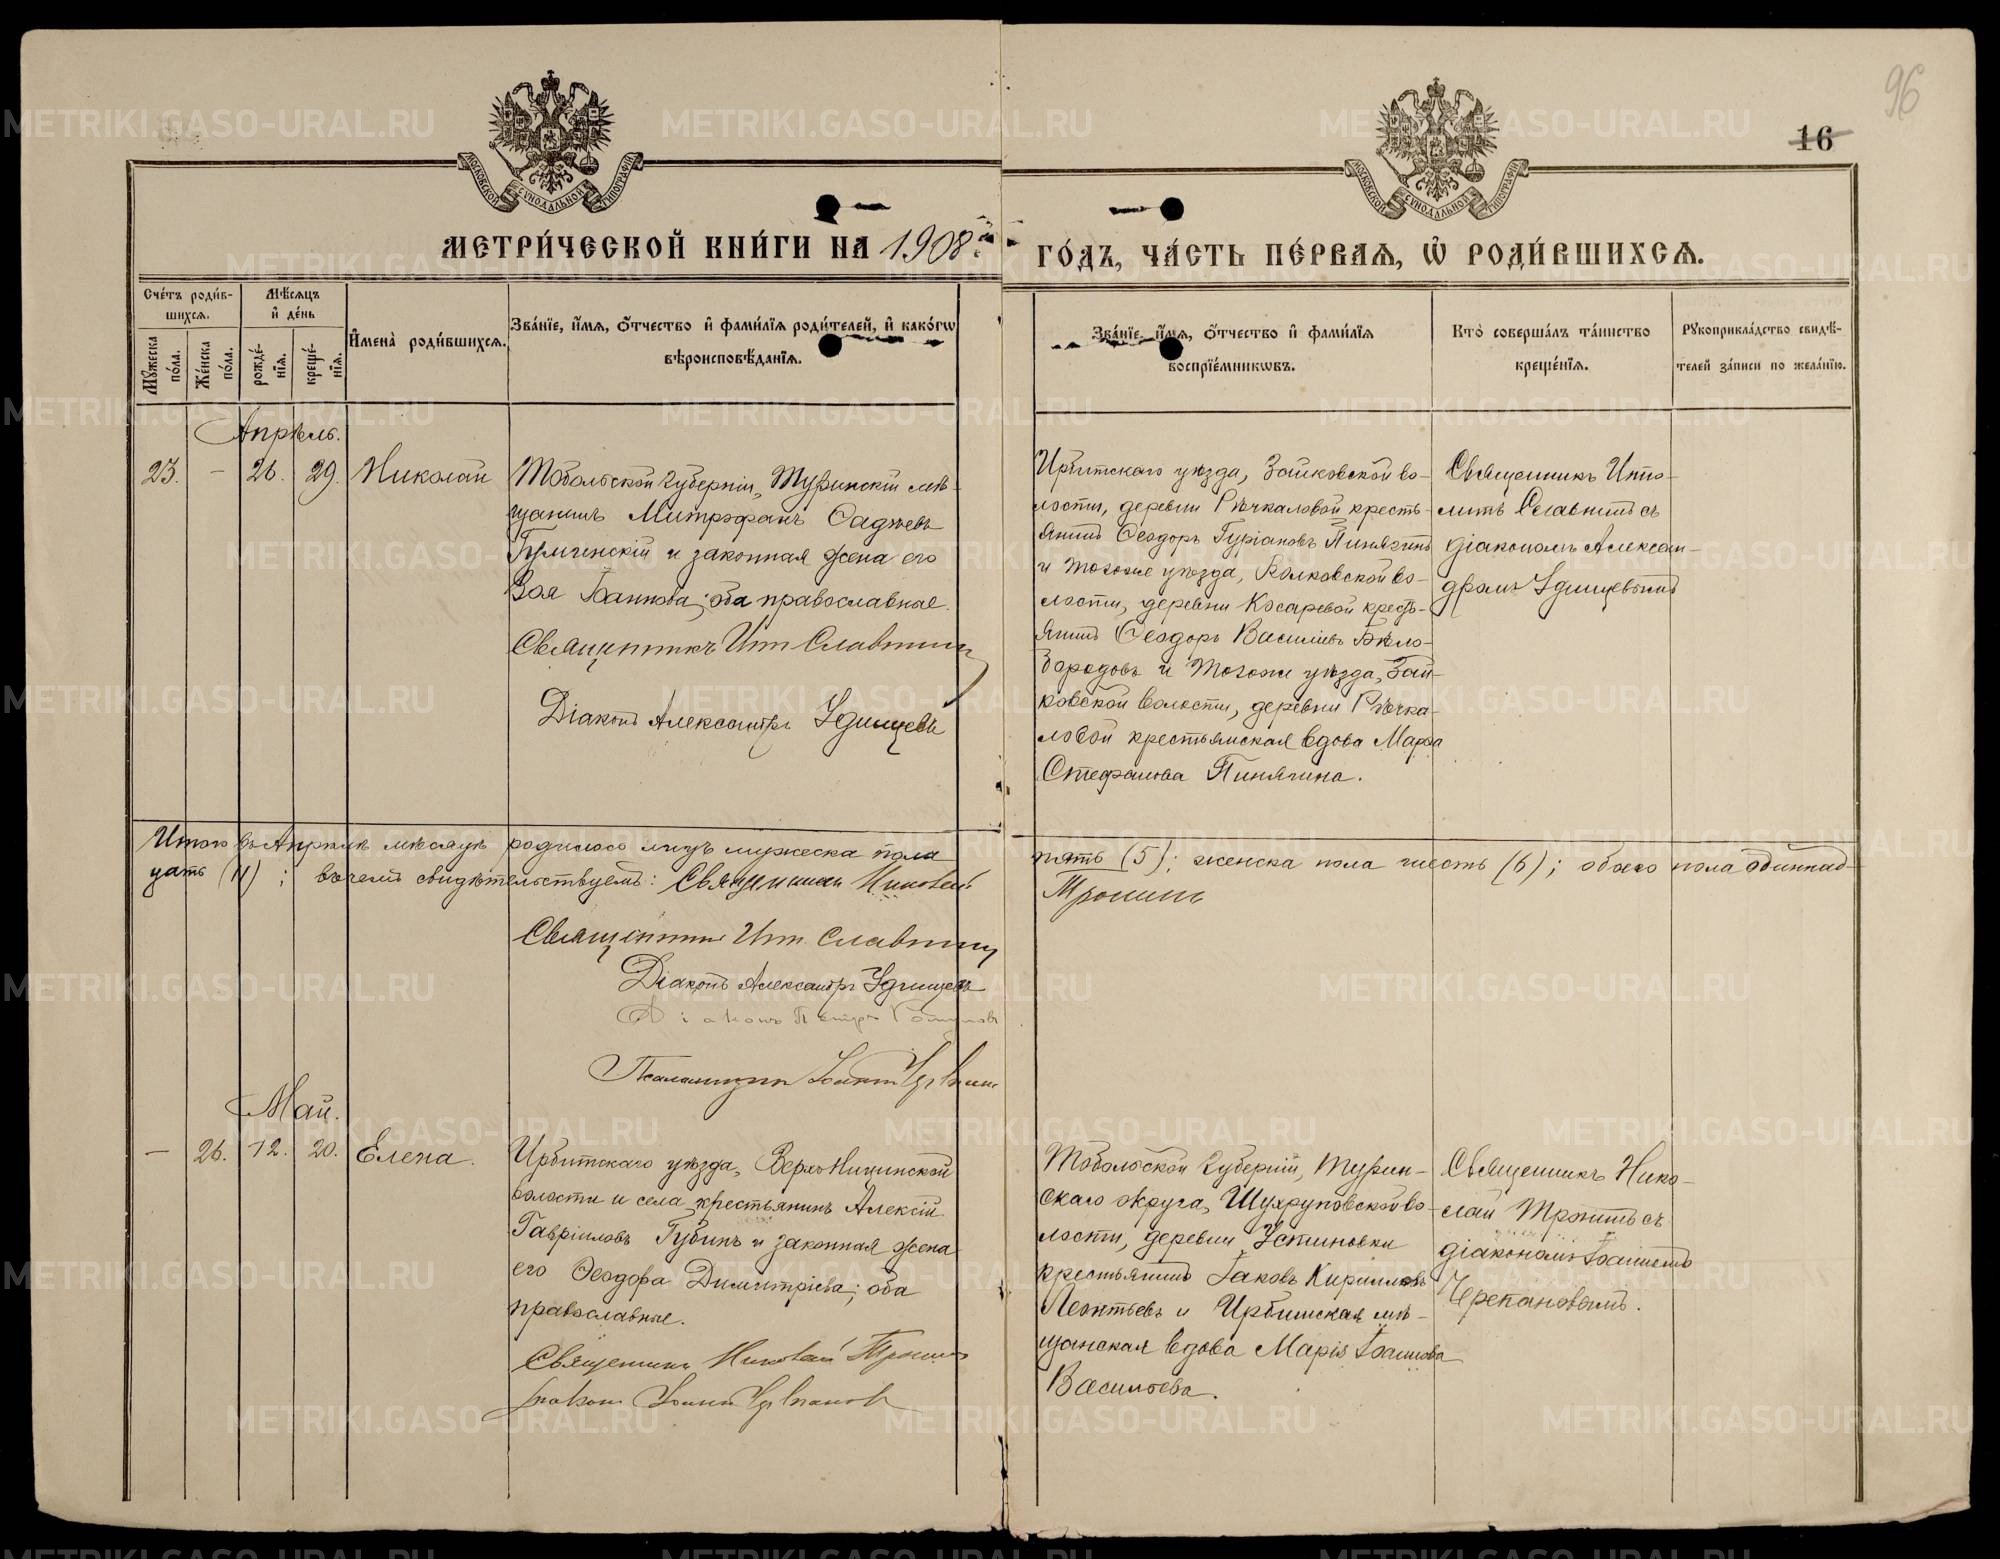 96
16
МОСКОВСКОЙ СѴНОДАЛЬНОЙ ТИПОГРАФІИ
МОСКОВСКОЙ СѴНОДАЛЬНОЙ ТИПОГРАФІИ
МЕТРИ́ЧЕСКОЙ КНИ́ГИ НА 1908й
ГО́ДЪ, ЧА́СТЬ ПЕ́РВАѦ, Ѡ҆ РОДИ́ВШИХСѦ.
Сче́тъ роди́в-
шихсѧ.
Мѣ́сѧцъ
и҆ де́нь
И҆мена̀ роди́вшихсѧ.
Зва́нїе, и҆́мѧ, ѻ҆́тчество и҆ фами́лїѧ роди́телей, и҆ како́гѡ
вѣроисповѣ́данїѧ.
Мꙋ́жеска по́ла.
Же́нска по́ла.
рожде́нїѧ.
креще́нїѧ.
Зва́нїе, и҆́мѧ, ѻ҆́тчество и҆ фами́лїѧ
воспрїе́мникѡвъ.
Кто̀ соверша́лъ та́инство
креще́нїѧ.
Рꙋкоприкла́дство свидѣ́-
телей за́писи по жела́нїю.
Апрѣль.
23. – 26. 29. Николай
Тобольской губерніи, Туринскій мѣ-
щанинъ Митрофанъ
и законная жена его
Зоя Іоаннова; оба православные.
Священникъ Ип. Славнинъ
Діаконъ Александръ Удинцевъ
Ирбитскаго уѣзда, Зайковской во-
лости, деревни Рѣчкаловой кресть-
янинъ Ѳеодоръ Гуріановъ Пинягинъ
и тогоже уѣзда, волости, деревни Косаревой кресть-
янинъ Ѳеодоръ Василіевъ Бѣло-
бородовъ и тогоже уѣзда, Зай-
ковской волости, деревни Рѣчка-
ловой крестьянская вдова Марѳа
Стефанова Пинягина.
Священникъ Иппо-
литъ Славнинъ съ
діакономъ Алексан-
дромъ Удинцевымъ
Итого въ Апрѣлѣ мѣсяцѣ родилось лицъ мужеска пола
пять (5); женска пола шесть (6); обоего пола одиннад-
цать (11); въ чемъ свидѣтельствуемъ: Священникъ Николай
Тронинъ
Священникъ Ип. Славнинъ
Діаконъ Александръ Удинцевъ
Діаконъ Петръ
Псаломщикъ Іоаннъ
Май.
– 26. 12. 20. Елена.
Ирбитскаго уѣзда, Верхъ-Ницинской
волости и села крестьянинъ Алексій
Гавріиловъ Губинъ и законная жена
его Ѳеодора Димитріева; оба
православные.
Священникъ Николай Тронинъ
Діаконъ Іоаннъ Черепановъ
Тобольской губерніи, Турин-
скаго округа, Шухруповской во-
лости, деревни Устиновки
крестьянинъ Іаковъ Кирилловъ
Леонтьевъ и Ирбитская мѣ-
щанская вдова Марія Іоаннова
Васильева.
Священникъ Нико-
лай Тронинъ съ
діакономъ Іоанномъ
Черепановымъ.
METRIKI.GASO-URAL.RU